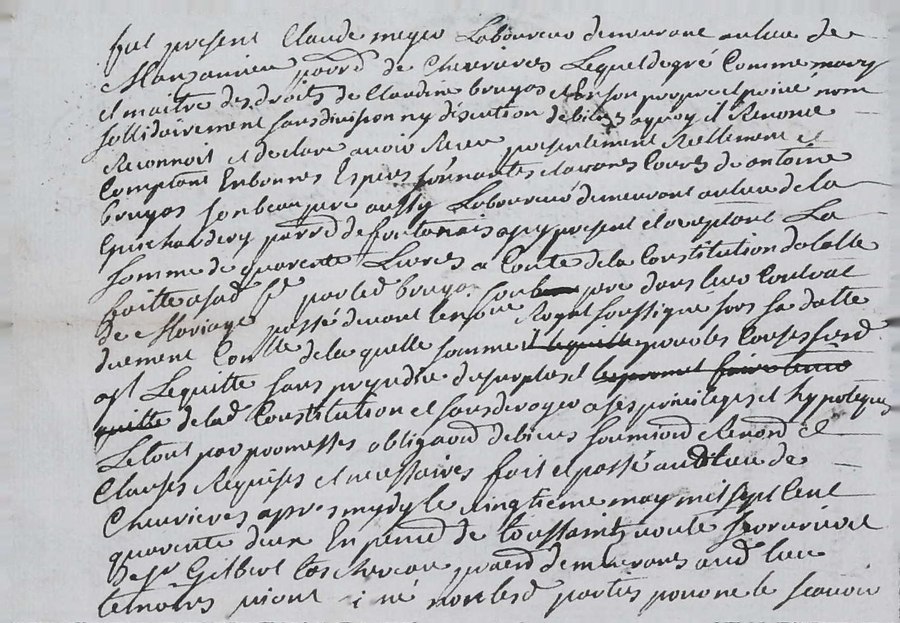 fut present Claude meyer Laboureur demeurant au lieu de
parr.d de Chevrieres Lequel de gré Comme mary
et maitre des droits de Claudine bruyas et en son propre et privé nom
sollidairement sans division ny discution de biens a quoy il Renonce
Reconnoit et declare avoir Receu presentement Reellement et
Comptant En bonnes Espesses sonnantes et ayans Cours de antoine
bruyas son beau pere aussy Laboureur demeurant au lieu de la
parr.d de fontanais icy present et aceptant La
somme de quarente Livres a Conte de la Constitution dotalle
faitte a sad. fe par led. bruyas son pere dans leur Contrat
de Mariage passé devant le no.re Royal soussigné sous sa datte
duement Con.llé de la quelle somme pour les Causes sus.d
il Lequitte sans prejudice du surplus et
de lad. Constitution et sans deroger a ses privileges et hypoteques
Le tout par promesses obligaons de biens soumions Renons et
Clauses Requises et necessaires fait et passé aud. lieu de
Chevrieres apres mydy le vingtieme may mil sept Cent
quarente deux En pnce de toussaint
de sr Gilbert demeurans aud. lieu
temoins ne lesd. parties pour ne le scavoir